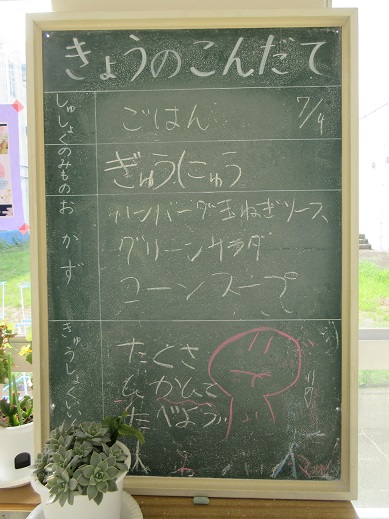 きょうのこんだて
しゅしょく ごはん 7/4
のみもの ぎゅうにゅう
おかず ハンバーグ玉ねぎソース
グリーンサラダ
コーンスープ
きゅうしょくい
たべよう